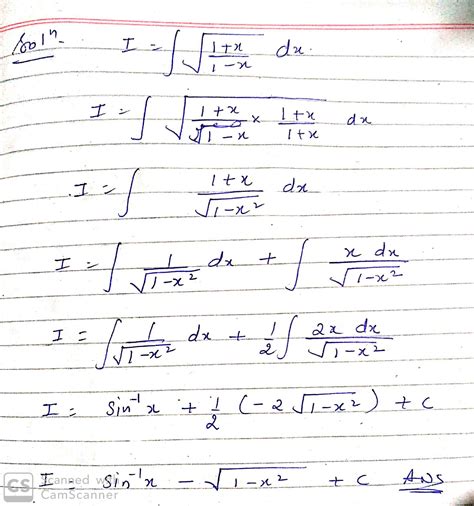 Solⁿ- I = ∫ √((1+x)/(1-x)) dx.
I = ∫ √((1+x)/(1-x) × (1+x)/(1+x)) dx
I = ∫ (1+x)/√(1-x²) dx
I = ∫ 1/√(1-x²) dx + ∫ x dx/√(1-x²)
I = ∫ 1/√(1-x²) dx + 1/2 ∫ 2x dx/√(1-x²)
I = sin⁻¹x + 1/2 (-2√(1-x²)) + c
I = sin⁻¹x - √(1-x²) + c Ans
CS Scanned with
CamScanner